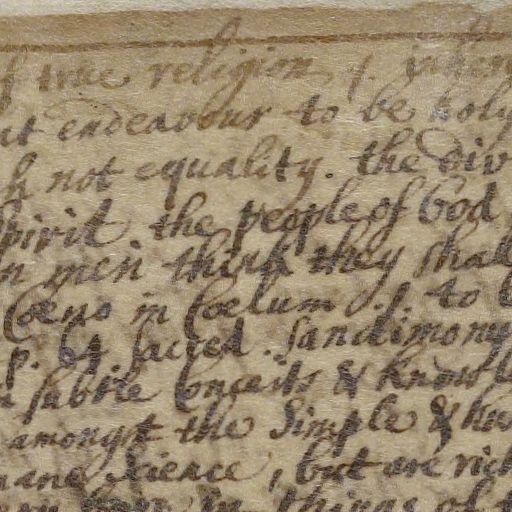 f true religion, s. when
ut endeavour to be holy
h not equality. the div
spirit the people of God
n men think they shall
Coeno in Coelum. s. to
p. et sacred. Sanctimony
subtle Conceits & knowle
amongst the Simple & hu
mane Science, but are rich
things of t